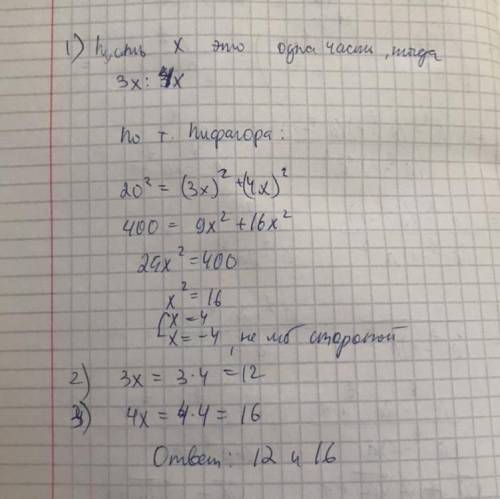 1) Пусть x это одна части, тогда
3x : 4x
По т. Пифагора:
20² = (3x)² + (4x)²
400 = 9x² + 16x²
25x² = 400
x² = 16
[x = 4
x = -4, не мб стороной
2) 3x = 3·4 = 12
3) 4x = 4·4 = 16
Ответ: 12 и 16